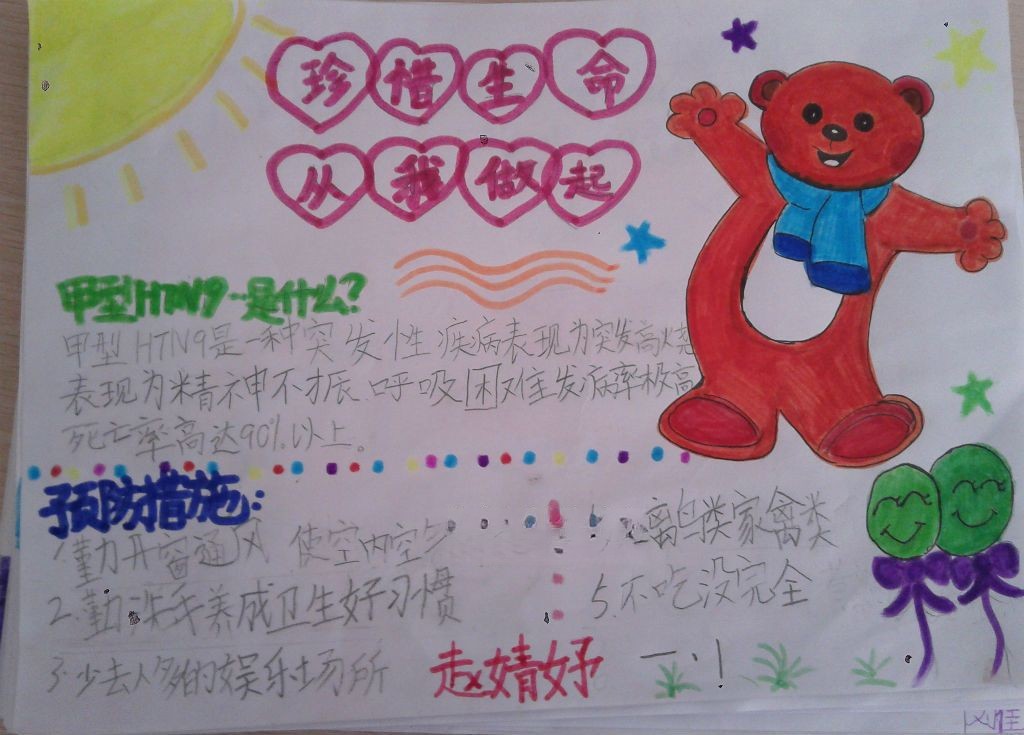 珍惜生命
从我做起
甲型H7N9是什么?
甲型H7N9是一种突发性疾病表现为突发高烧
表现为精神不振、呼吸困难住发病率极高
死亡率高达90%以上。
预防措施:
1.勤开窗通风 使空内空
2.勤洗手养成卫生好习惯
3.少去人多的娱乐场所
离鸟类家禽类
5.不吃没完全
赵婧妤
一.1